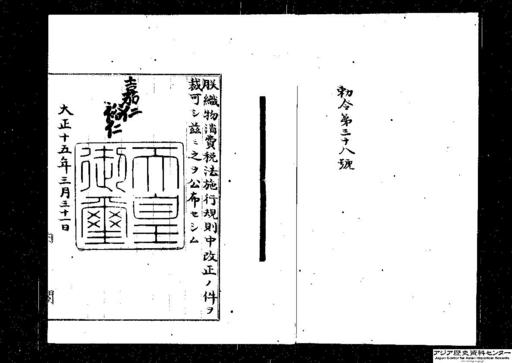 勅令第三十八號
朕織物消費税法施行規則中改正ノ件ヲ
裁可シ茲ニ之ヲ公布セシム
嘉仁
裕仁
天皇
御璽
大正十五年三月三十一日
閣
アジア歴史資料センター
Japan Center for Asian Historical Records